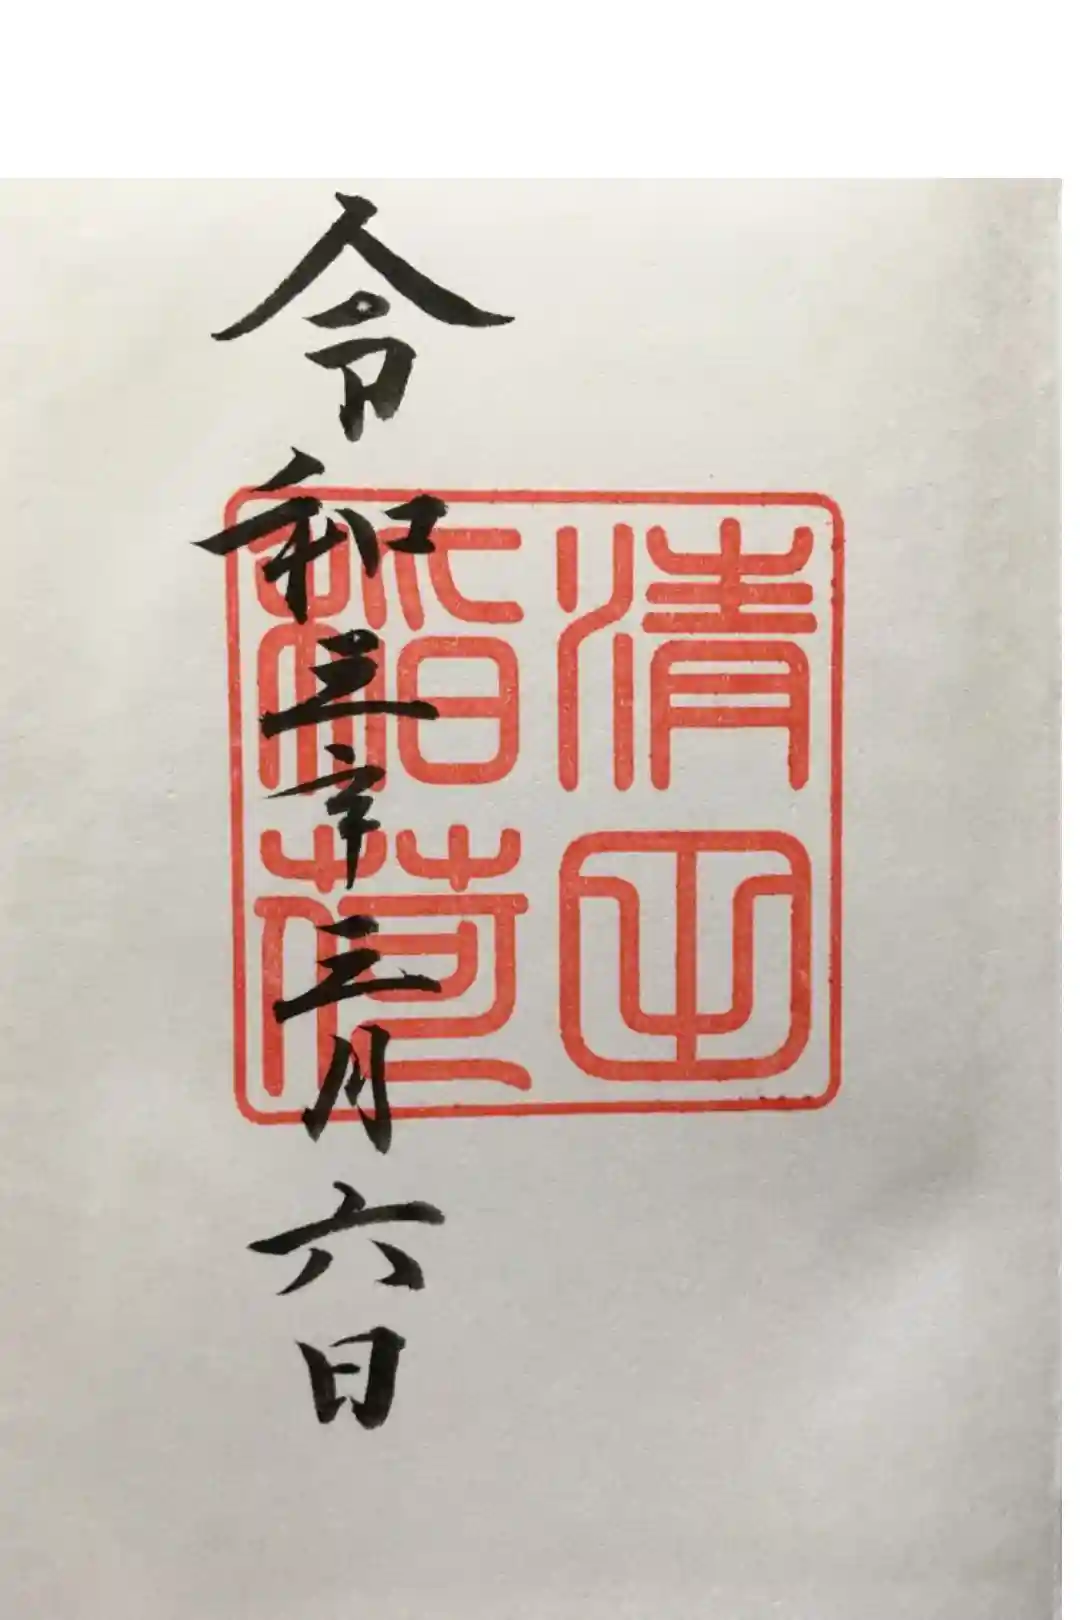 清
稲荷
令和三年三月六日